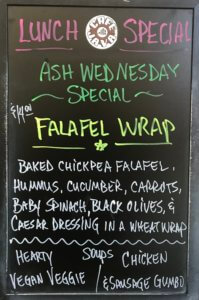 LUNCH SPECIAL
ASH WEDNESDAY
~ SPECIAL ~
FALAFEL WRAP
BAKED CHICKPEA FALAFEL,
HUMMUS, CUCUMBER, CARROTS,
BABY SPINACH, BLACK OLIVES, &
CAESAR DRESSING IN A WHEAT WRAP
SOUPS
HEARTY
VEGAN VEGGIE
CHICKEN
& SAUSAGE GUMBO